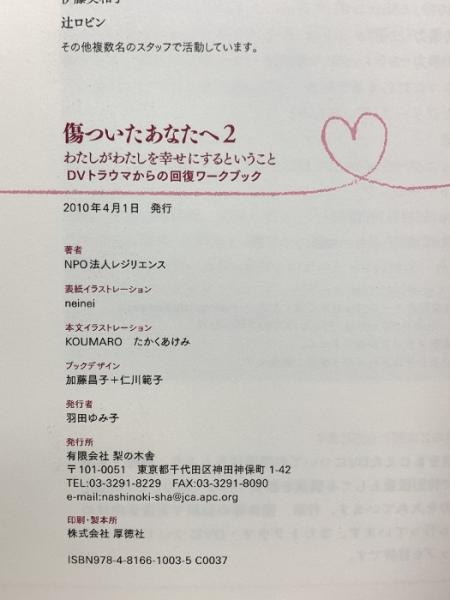 辻ロビン
その他複数名のスタッフで活動しています。
傷ついたあなたへ2
わたしがわたしを幸せにするということ
DVトラウマからの回復ワークブック
2010年4月1日 発行
著者
NPO法人レジリエンス
表紙イラストレーション
neinei
本文イラストレーション
KOUMARO たかくあけみ
ブックデザイン
加藤昌子+仁川範子
発行者
羽田ゆみ子
発行所
有限会社 梨の木舎
〒101-0051 東京都千代田区神田神保町1-42
TEL:03-3291-8229 FAX:03-3291-8090
e-mail:nashinoki-sha@jca.apc.org
印刷・製本所
株式会社 厚徳社
ISBN978-4-8166-1003-5 C0037